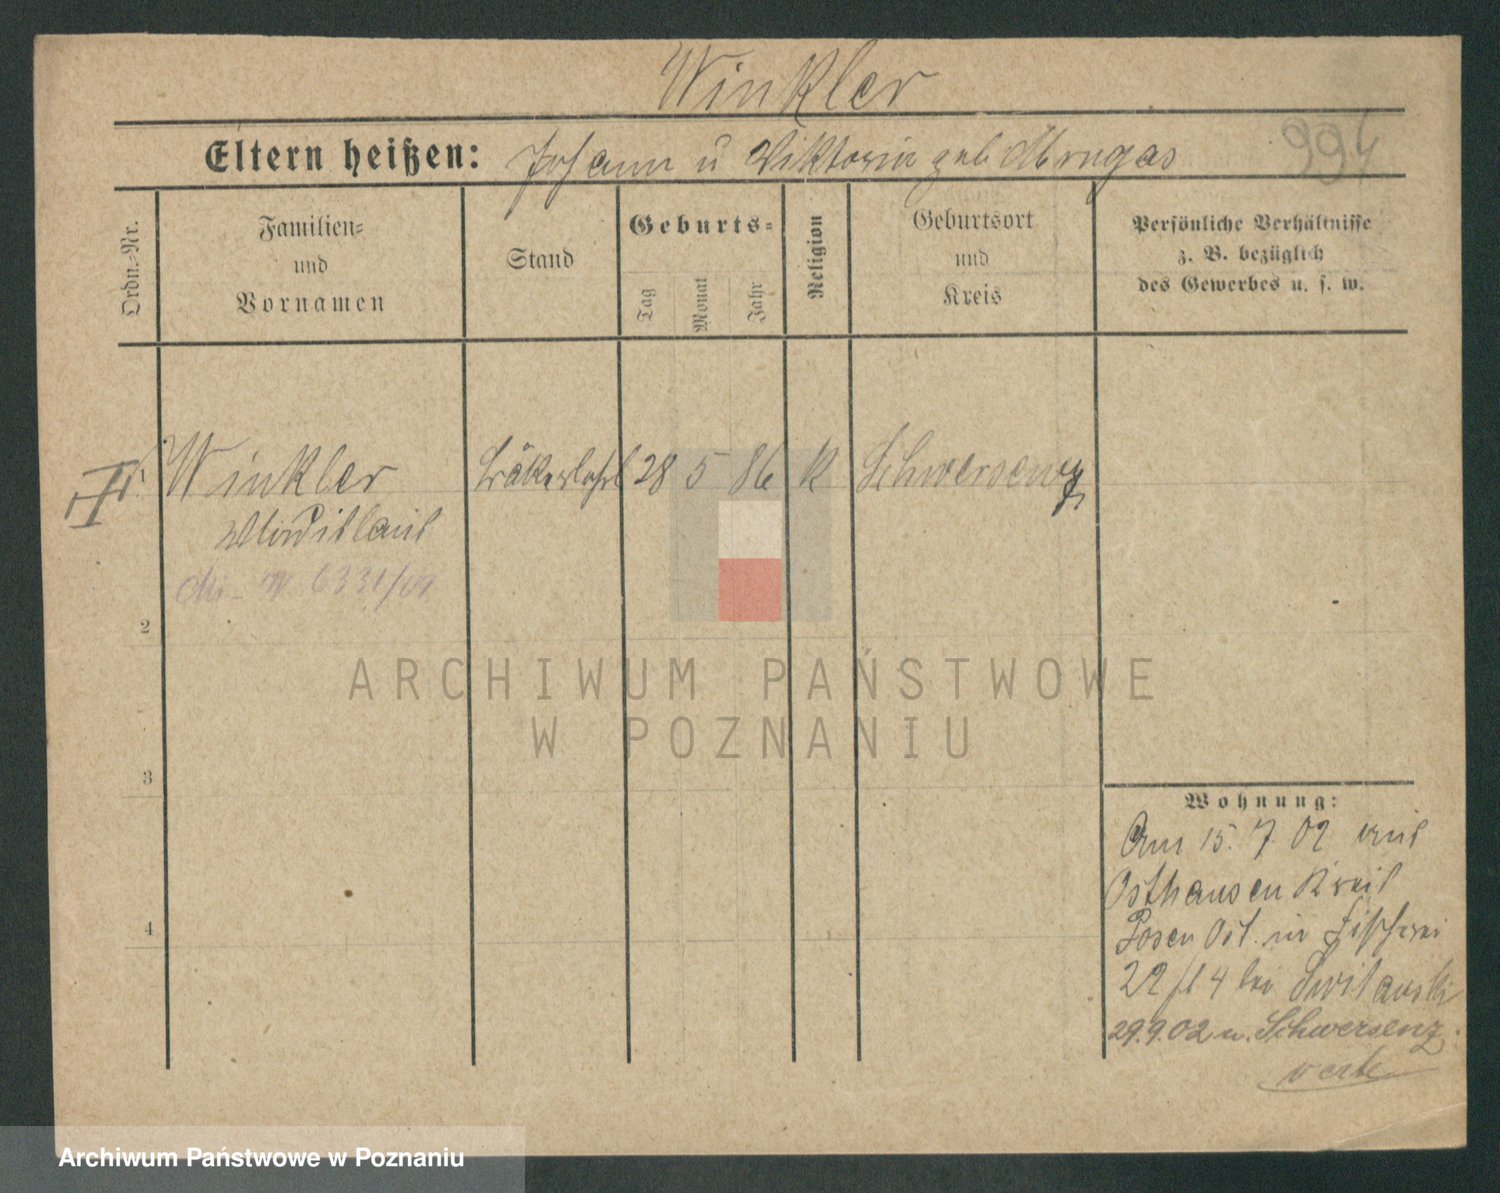 Winkler
994
Eltern heißen: Johann u Viktoria geb Mrugas
Ordn.-Nr.
Familien-
und
Vornamen
Stand
Geburts-
Tag
Monat
Jahr
Religion
Geburtsort
und
Kreis
Persönliche Verhältnisse
z. B. bezüglich
des Gewerbes u. s. w.
Winkler
28 5 86 K Schwersenz
Wladislaus
6331/09
2
ARCHIWUM PAŃSTWOWE
W POZNANIU
3
4
Wohnung:
Am 15. 7. 02 aus
Osthausen Kreis
Posen Ost. in Fischerei
22/24 bei
29.9.02 n. Schwersenz.
verte
Archiwum Państwowe w Poznaniu